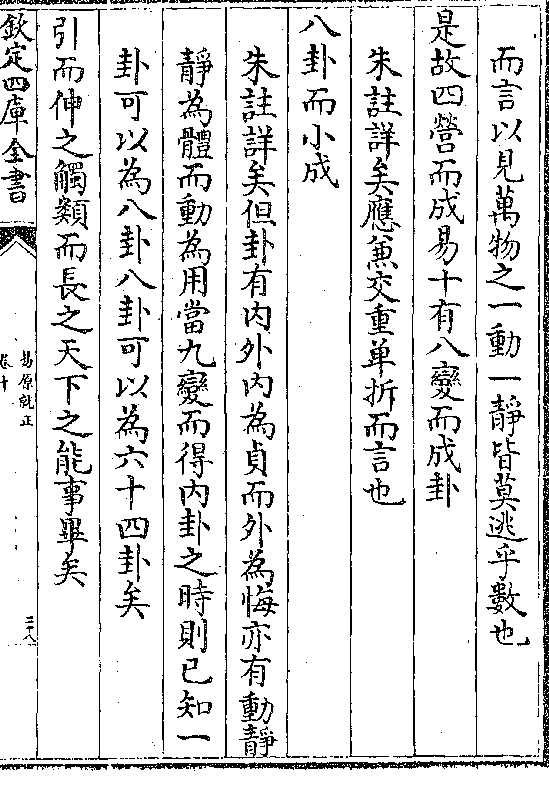 而言以見萬物之一動一靜皆莫逃乎數也
是故四營而成易十有八變而成卦
朱註詳矣應兼交重单折而言也
八卦而小成
朱註詳矣但卦有内外内為貞而外為悔亦有動靜
靜為體而動為用當九變而得内卦之時則已知一
卦可以為八卦八卦可以為六十四卦矣
引而伸之觸類而長之天下之能事畢矣
欽定四庫全書
易原就正
卷十
三十八